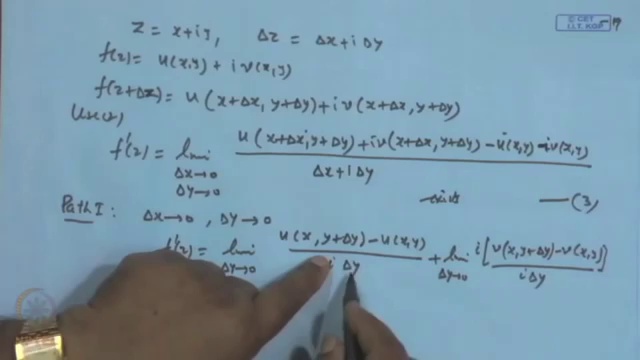 © CET
I.I.T. KGP
Z = x+iy, Δz = Δx+iΔy
f(z) = u(x,y) + i v(x,y)
f(z+Δz) = u(x+Δx, y+Δy) + i v(x+Δx, y+Δy)
Use(2)
f'(z) = lim Δx→0 Δy→0 u(x+Δx, y+Δy) + iv(x+Δx, y+Δy) - u(x,y) - iv(x,y) / Δx+iΔy
exists —(3)
Path I: Δx→0, Δy→0
f'(z) = lim Δy→0 u(x, y+Δy) - u(x,y) / i Δy + lim Δy→0 i[v(x,y+Δy) - v(x,y)] / iΔy